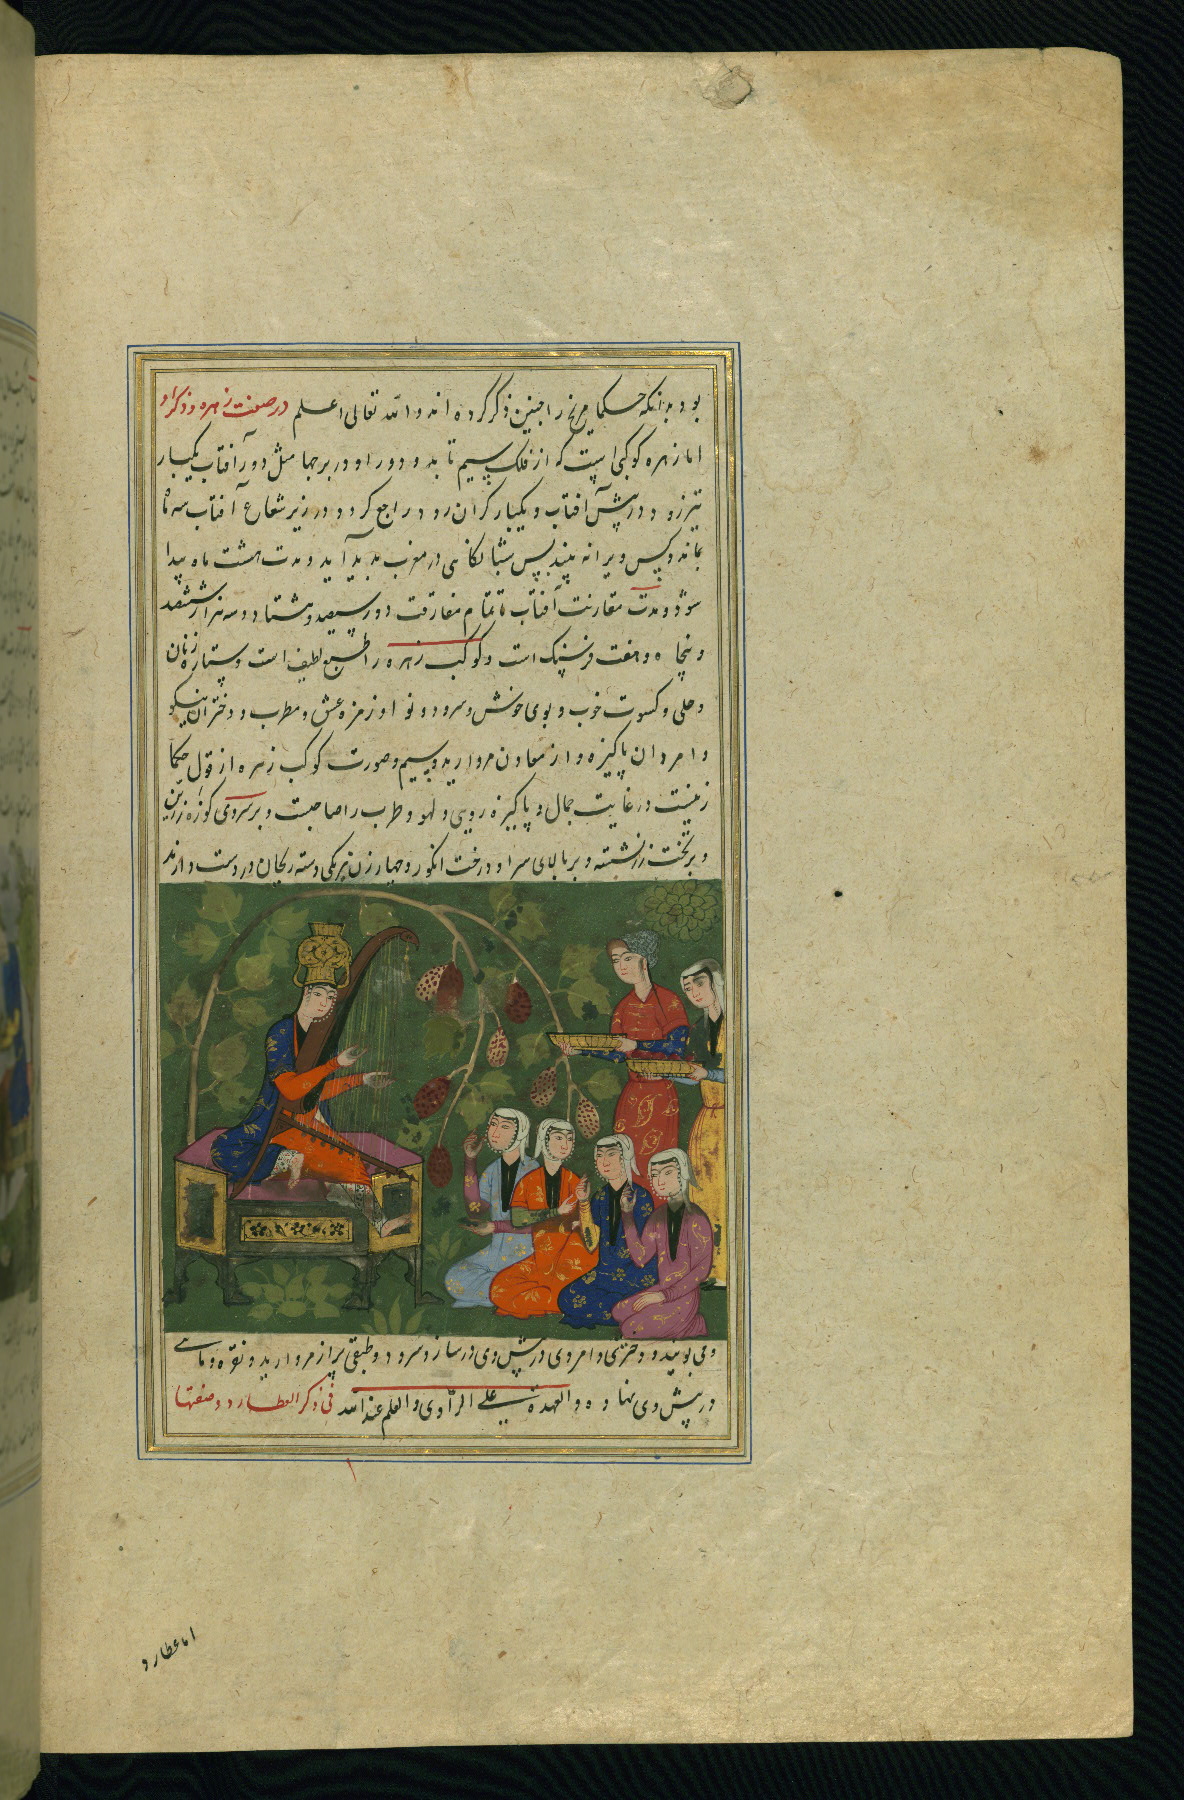 بود بدانکه حکما مریخ را چنین ذکر کرده اند والله تعالی اعلم در صفت زهره و ذکر او
اما زهره کوکبی است که از فلک سیم تابد و دور او در برجها مثل دور آفتاب یکبار
تیز رود در پیش آفتاب و یکبار گران رود راجع گردد در زیر شعاع آفتاب سه ماه
بماند و کس ویرا نه بیند پس شبانگاهی در مغرب پدید آید و مدت هشت ماه پیدا
شود و مدت مقارنت آفتاب تا تمام مفارقت دور سیصد و هشتاد و سه هزار ششصد
و پنجاه و هفت فرسنگ است و کوکب زهره را طبع لطیف است و ستاره زنان
و حلی و کسوت خوب و بوی خوش و سرود و نواز زمزه عیش و مطرب و دختران نیکو
و امردان پاکیزه و از معادن مروارید و سیم و صورت کوکب زهره از قول حکما
زنیست در غایت جمال و پاکیزه رویی و لهو و طرب را صاحبت و بر سر وی کوزه زرین
و بر تخت زر نشسته و بر بالای سر او درخت انکور و چهار زن هر یکی دسته ریحان در دست دارند
و می بویند و دختری و امردی در پیش وی در ساز و سرود و طبقی پر از مروارید و نقره
در پیش وی نهاده والعهدة علی الراوی والعلم عند الله فی ذکر العطارد و صفتها
اما عطارد